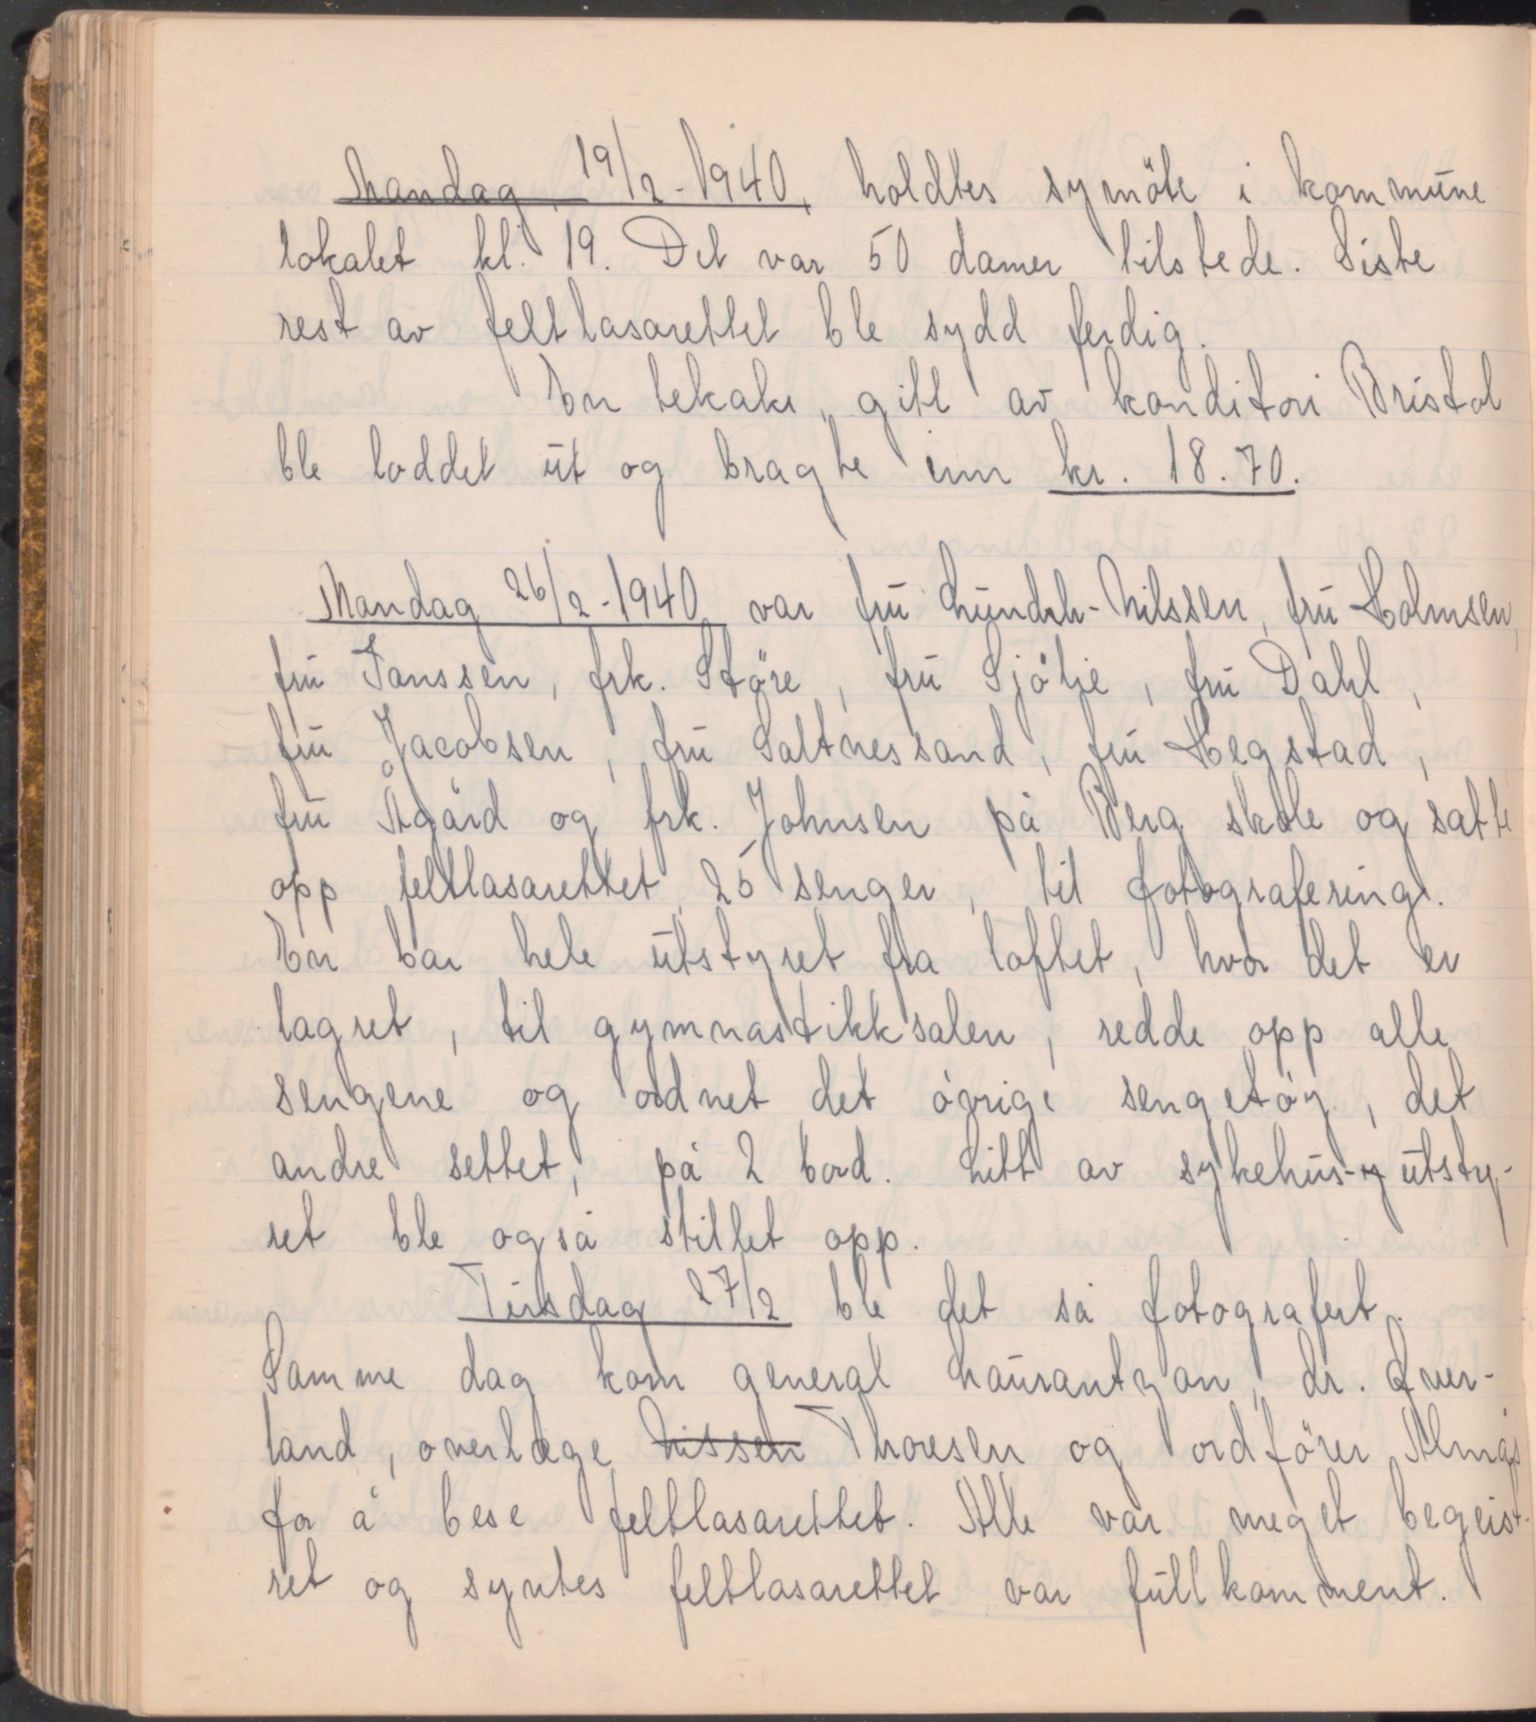 Mandag 19/2-1940, holdtes symöte i kommune
lokalet kl. 19. Det var 50 damer tilstede. Siste
rest av feltlasarettet ble sydd ferdig.
En tekake, gitt av konditori Bristol
ble loddet ut og bragte inn kr. 18.70.
Mandag 26/2-1940 var fru Lundh-Nilssen, fru Holmsen,
fru Janssen, frk. Störe, fru Sjölie, fru Dahl,
fru Jacobsen, fru Saltnessand, fru Hegstad,
fru Ågård og frk. Johnsen på Berg skole og satte
opp feltlasarettet, 25 senger, til fotografering.
En bar hele utstyret fra loftet, hvor det er
lagret, til gymnastikksalen, redde opp alle
sengene og ordnet det övrige sengetöy, det
andre settet, på 2 bord. Litt av sykehus-utsty-
ret ble også stillet opp.
Tirsdag 27/2 ble det så fotografert.
Samme dag kom general Laurantzon, dr. Qver-
land, overlæge Nissen Thoresen og ordförer Almås
for å bese feltlasarettet. Alle var meget begeist-
ret og syntes feltlasarettet var fullkomment.